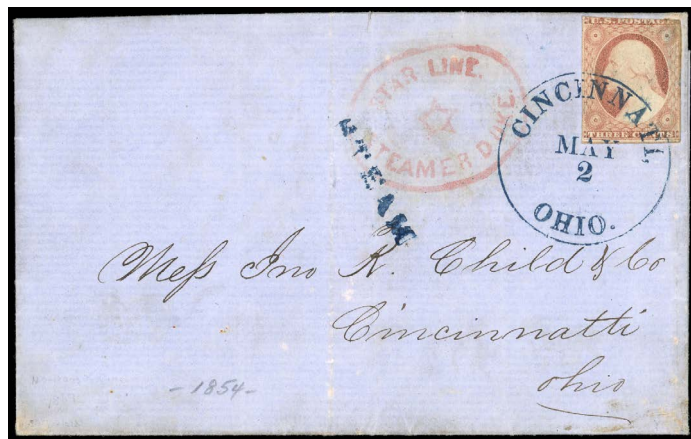 U.S. POSTAGE
THREE CENTS
STAR LINE.
STEAMER DUKE.
STEAM
CINCINNATI,
MAY
2
OHIO.
Mess Jno R. Child & Co
Cincinnatti
ohio
-1854-